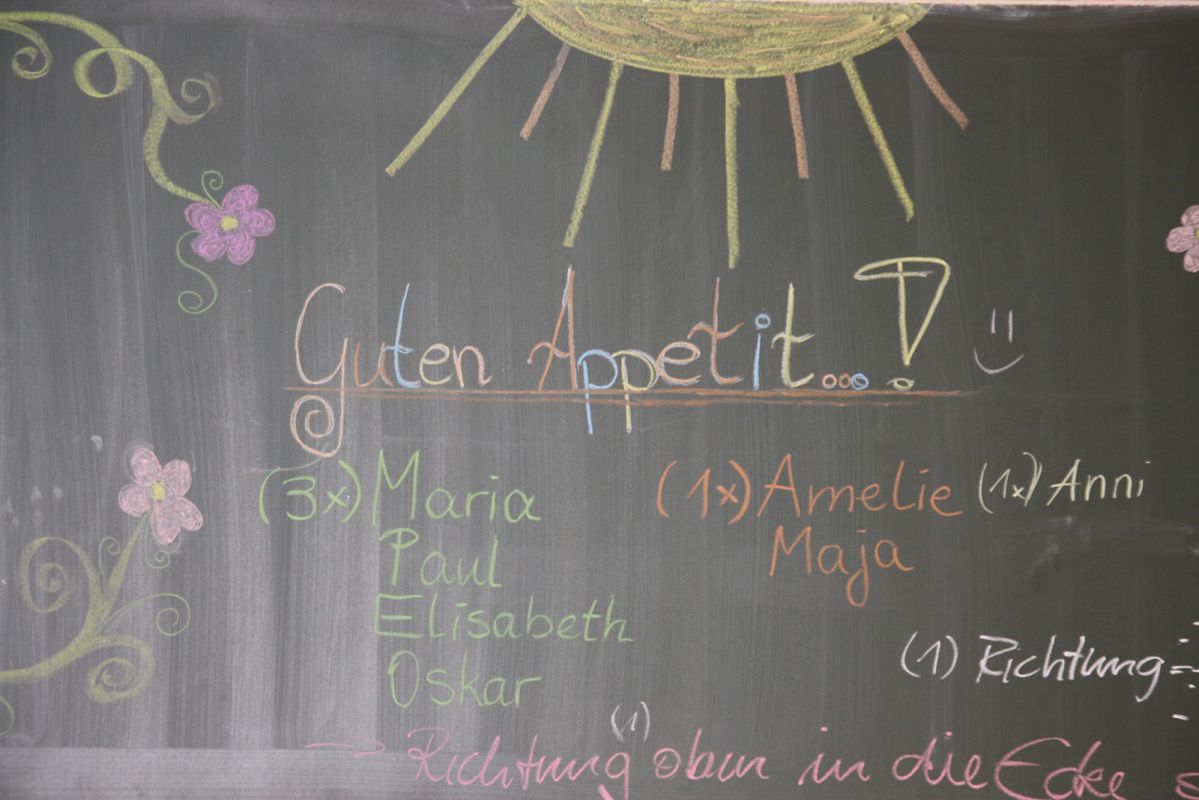 Guten Appetit...! :)
(3x) Maria (1x) Amelie (1x) Anni
Paul Maja
Elisabeth
Oskar
(1) Richtung
(1)
→ Richtung oben in die Ecke